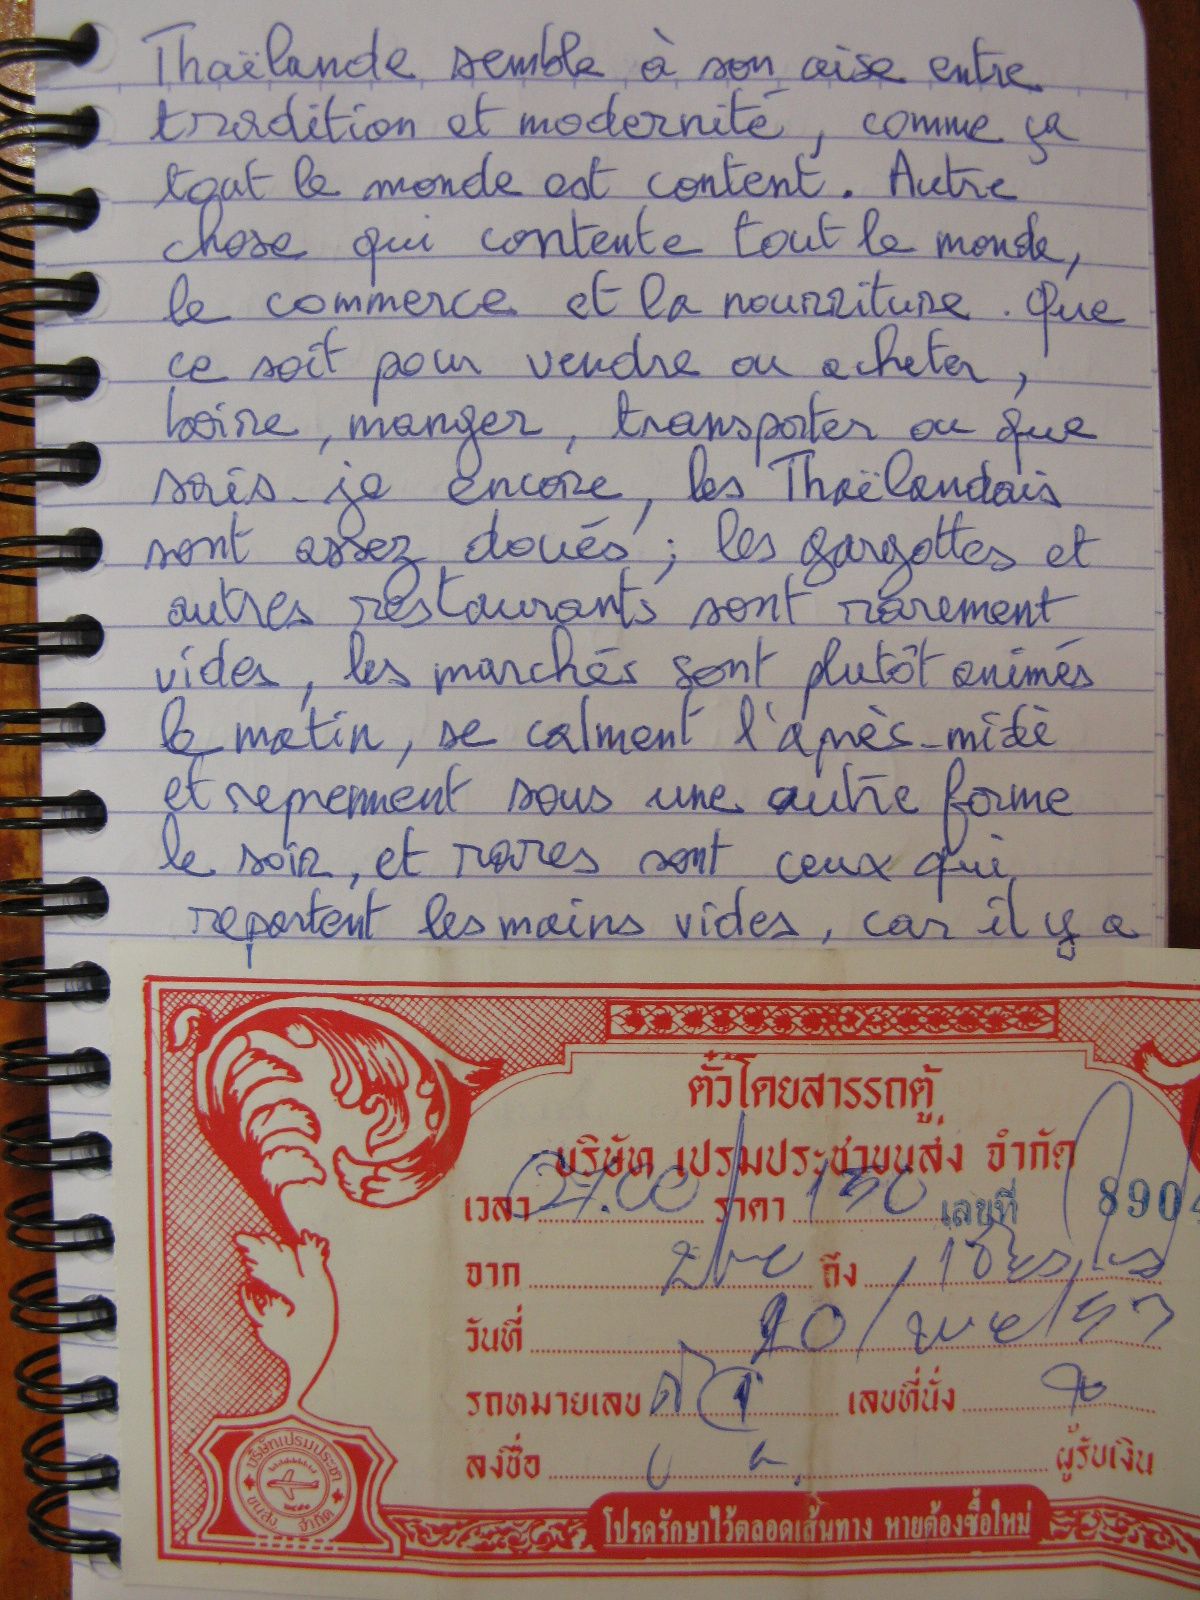 Thaïlande semble à son aise entre
tradition et modernité, comme ça
tout le monde est content. Autre
chose qui contente tout le monde,
le commerce et la nourriture. Que
ce soit pour vendre ou acheter,
boire, manger, transporter ou que
sais-je encore, les Thaïlandais
sont assez doués ; les gargottes et
autres restaurants sont rarement
vides, les marchés sont plutôt animés
le matin, se calment l'après-midi
et reprennent sous une autre forme
le soir, et rares sont ceux qui
repartent les mains vides, car il y a
ตั๋วโดยสารรถตู้
บริษัท เปรมประชาขนส่ง จำกัด
เวลา 07.00 ราคา 150 เลขที่ 890
จาก ถึง
วันที่ 20/
รถหมายเลข เลขที่นั่ง
ลงชื่อ ผู้รับเงิน
บริษัทเปรมประชา
ขนส่ง จำกัด
โปรดรักษาไว้ตลอดเส้นทาง หายต้องซื้อใหม่